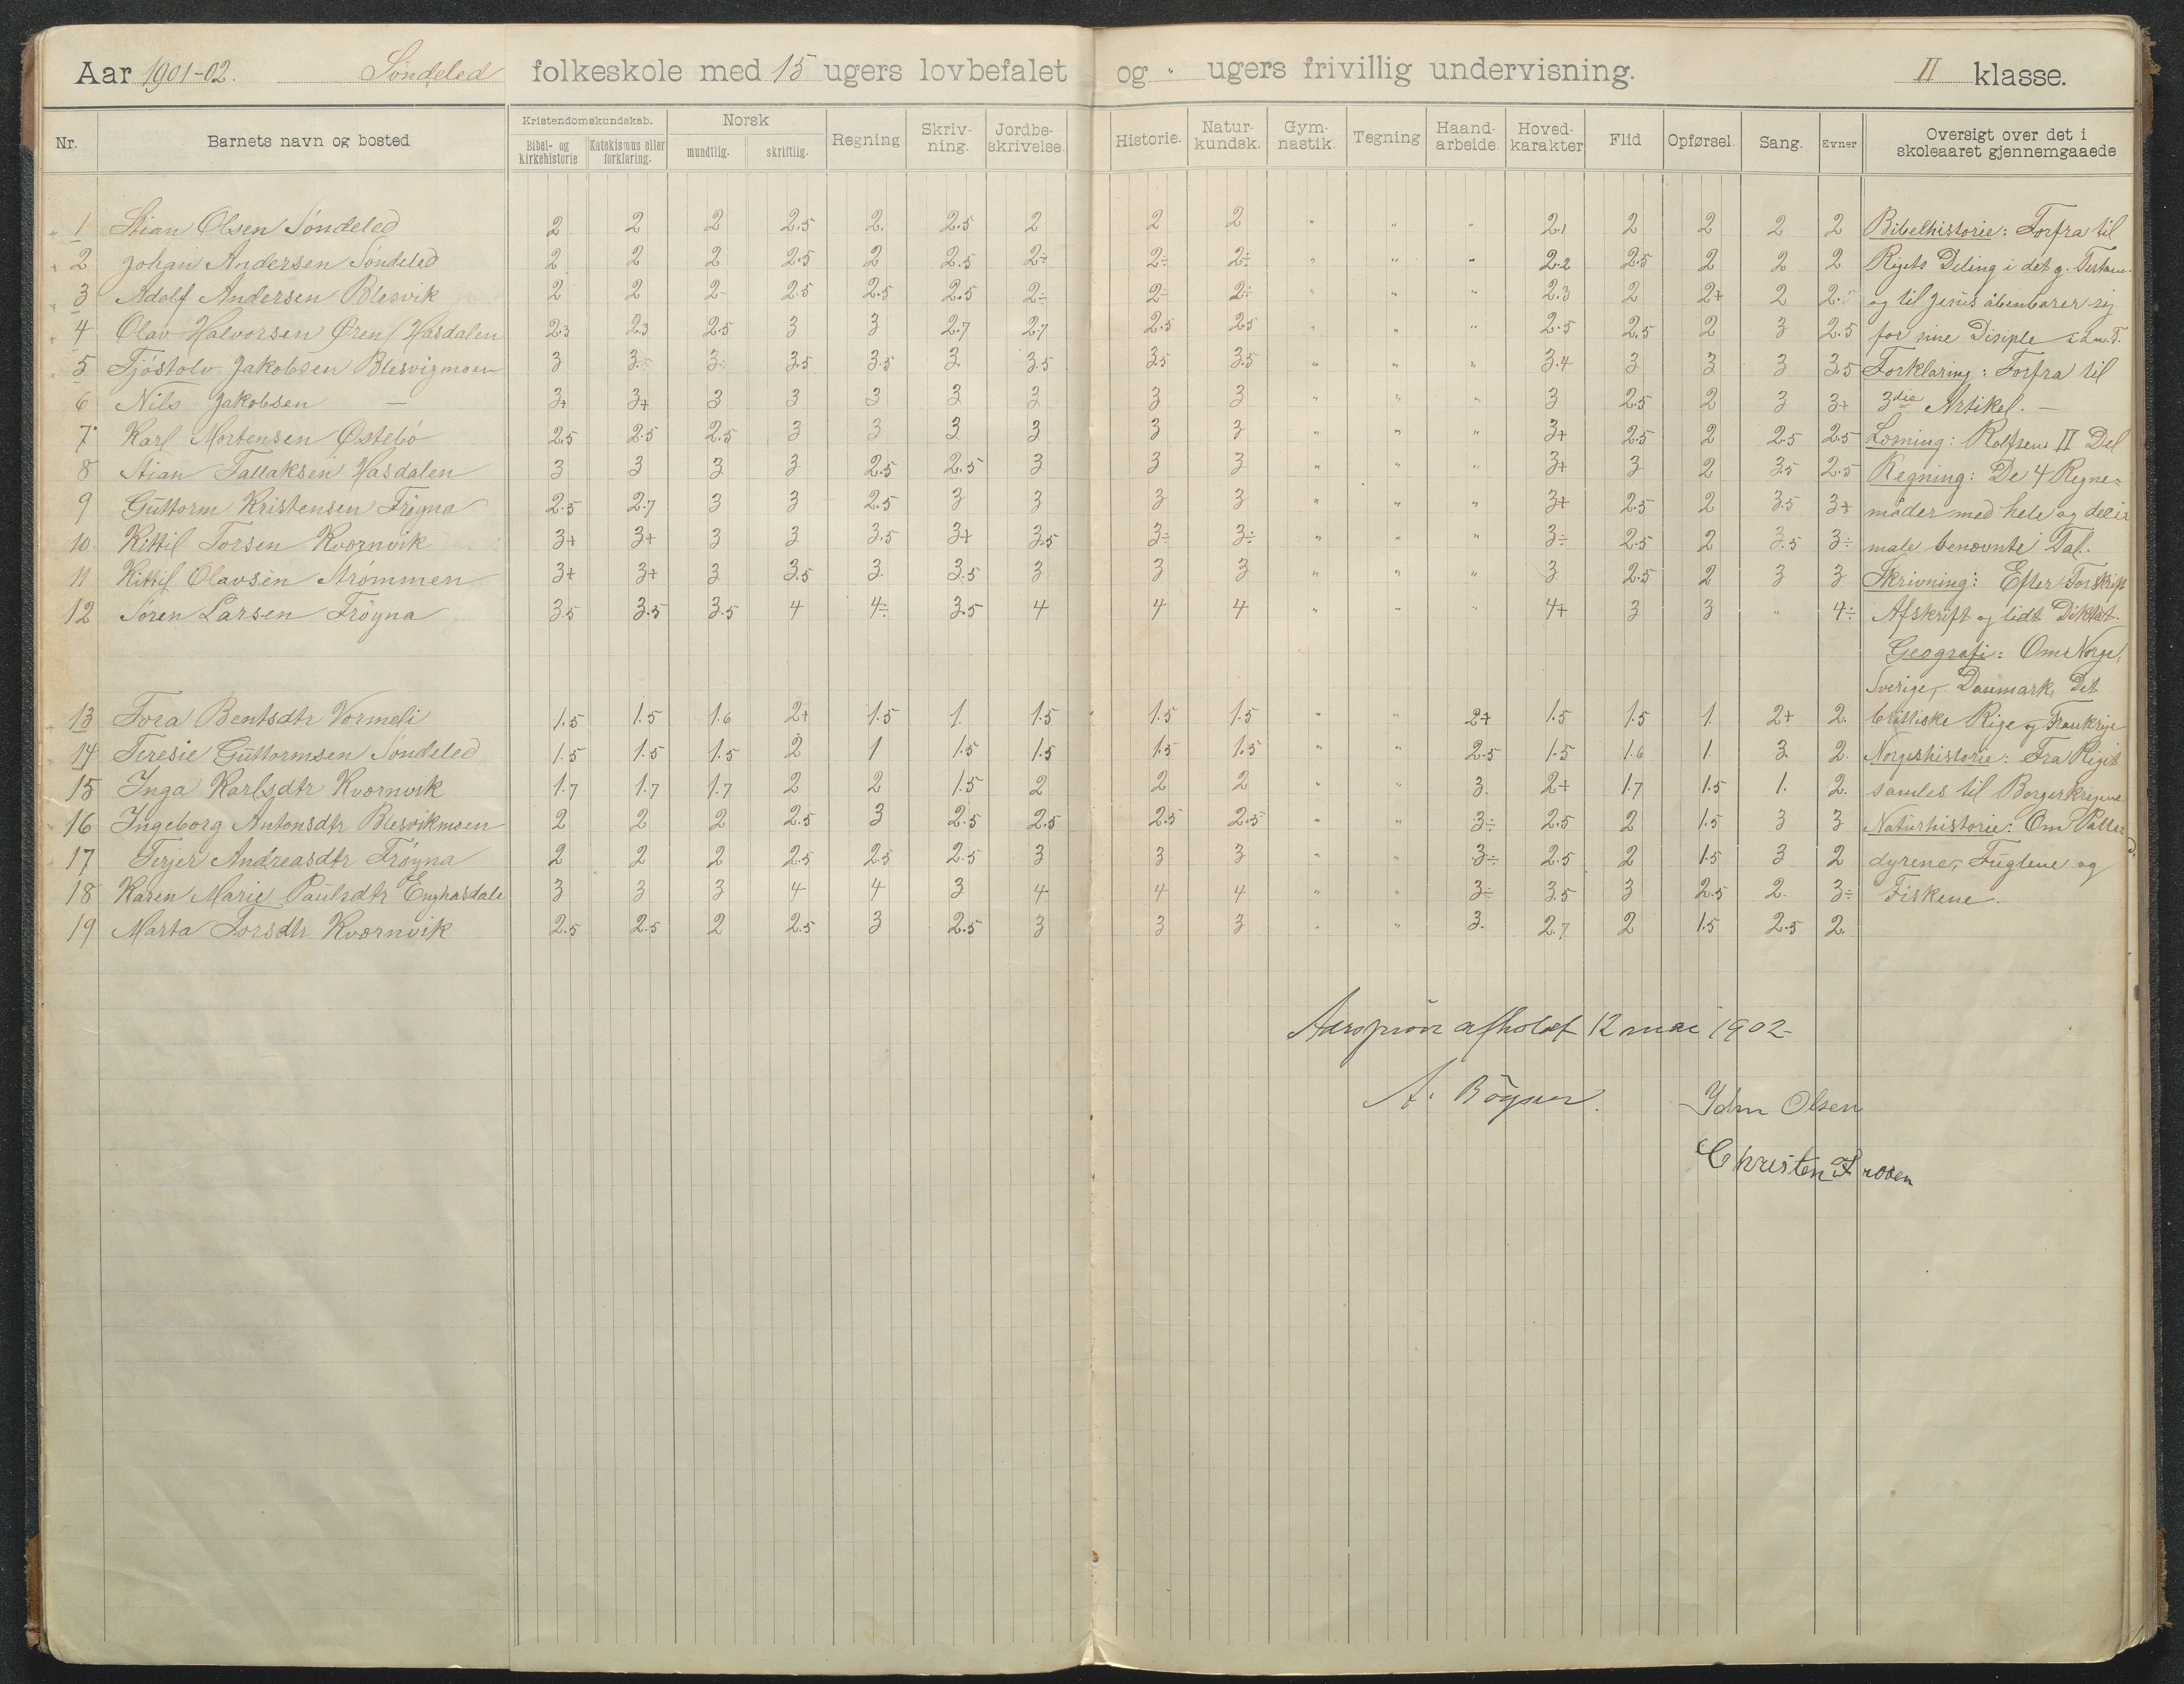 Aar 1901-02. Søndeled folkeskole med 15 ugers lovbefalet og " ugers frivillig undervisning. II klasse.
Nr. Barnets navn og bosted Kristendomskundskab. Bibel- og kirkehistorie Katekismus eller forklaring. Norsk mundtlig. skriftlig. Regning Skriv-ning. Jordbe-skrivelse. Historie. Natur-kundsk. Gym-nastik. Tegning Haand-arbeide. Hoved-karakter Flid Opførsel. Sang. Evner Oversigt over det i skoleaaret gjennemgaaede
1 Stian Olsen Søndeled 2 2 2 2.5 2. 2.5 2 2 2 " " " 2.1 2 2 2 2 Bibelhistorie: Forfra til
2 Johan Andersen Søndeled 2 2 2 2.5 2 2.5 2÷ 2÷ 2÷ " " " 2.2 2.5 2 2 2 Rigets Deling i det g. Testam.
3 Adolf Andersen Blesvik 2 2 2 2.5 2.5 2.5 2÷ 2÷ 2÷ " " " 2.3 2 2+ 2 2.5 og til Jesus åbenbarer sig
4 Olav Halvorsen Øren/Hasdalen 2.3 2.3 2.5 3 3 2.7 2.7 2.5 2.5 " " " 2.5 2.5 2 3 2.5 for sine Disiple
5 Tjøstolv Jakobsen Blesvigmoen 3 3. 3 3.5 3.5 3. 3.5 3.5 3.5 " " " 3.4 3 3 3 3.5 Forklaring: Forfra til
6 Nils Jakobsen — 3+ 3+ 3 3 3 3 3 3 3 " " " 3 2.5 2 3 3+ 3die Artikel. —
7 Karl Mortensen Østebö 2.5 2.5 2.5 3 3 3 3 3 3 " " " 3+ 2.5 2 2.5 2.5 Læsning: Rolfsens II Del
8 Stian Tallaksen Hasdalen 3 3 3 3 2.5 2.5 3 3 3 " " " 3+ 3 2 3.5 2.5 Regning: De 4 Regne-
9 Guttorm Kristensen Fröyna 2.5 2.7 3 3 2.5 3 3 3 3 " " " 3+ 2.5 2 3.5 3+ måder med hele og deci
10 Kittil Torsen Kværnvik 3+ 3+ 3 3 3.5 3+ 3.5 3÷ 3÷ " " " 3÷ 2.5 2 3.5 3÷ male benævnte Tal.
11 Kittil Olavsen Strømmen 3+ 3+ 3 3.5 3. 3.5 3 3 3 " " " 3 2.5 2 3 3 Skrivning: Efter Forskrift
12 Søren Larsen Fröyna 3.5 3.5 3.5 4 4÷ 3.5 4 4 4 " " " 4+ 3 3 " 4÷ Afskrift og lidt Diktat.
Geografi: Om Norge,
Sverige, Danmark, Det
13 Tora Bentsdtr Vormeli 1.5 1.5 1.6 2+ 1.5 1. 1.5 1.5 1.5 " " 2+ 1.5 1.5 1. 2+ 2. brittiske Rige og Frankrige
14 Teresie Guttormsen Søndeled 1.5 1.5 1.5 2 1 1.5 1.5 1.5 1.5 " " 2.5 1.5 1.6 1. 3 2. Norgeshistorie: Fra Riget
15 Inga Karlsdtr Kværnvik 1.7 1.7 1.7 2 2 1.5 2 2 2 " " 3. 2+ 1.7 1.5 1. 2. samles til Borgerkrigene
16 Ingeborg Antonsdtr Blesvikmoen 2 2 2 2.5 3 2.5 2.5 2.5 2.5 " " 3÷ 2.5 2 1.5 3 3 Naturhistorie: Om Patte
17 Terjer Andreasdtr Fröyna 2 2 2 2.5 2.5 2.5 3 3 3 " " 3÷ 2.5 2 1.5 3 2 dyrene, Fuglene og
18 Karen Marie Paulsdtr Enghasdale 3 3 3 4 4 3 4 4 4 " " 3÷ 3.5 3 2.5 2. 3÷ Fiskene.
19 Marta Torsdtr Kværnvik 2.5 2.5 2 2.5 3 2.5 3 3 3 " " 3. 2.7 2 1.5 2.5 2.
Aarsprøve afholdt 12 mai 1902-
A. Olsen
Christen